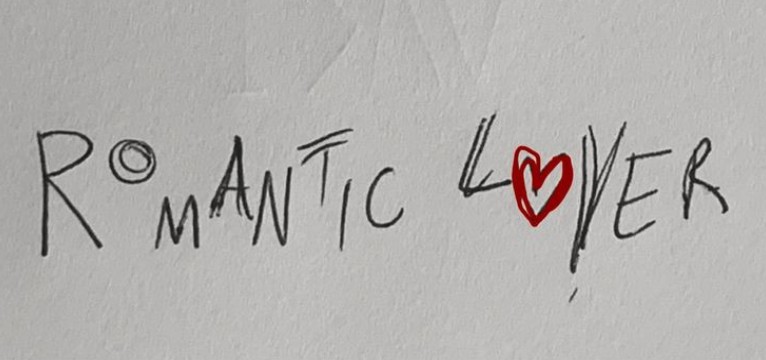 ROMANTIC LOVER